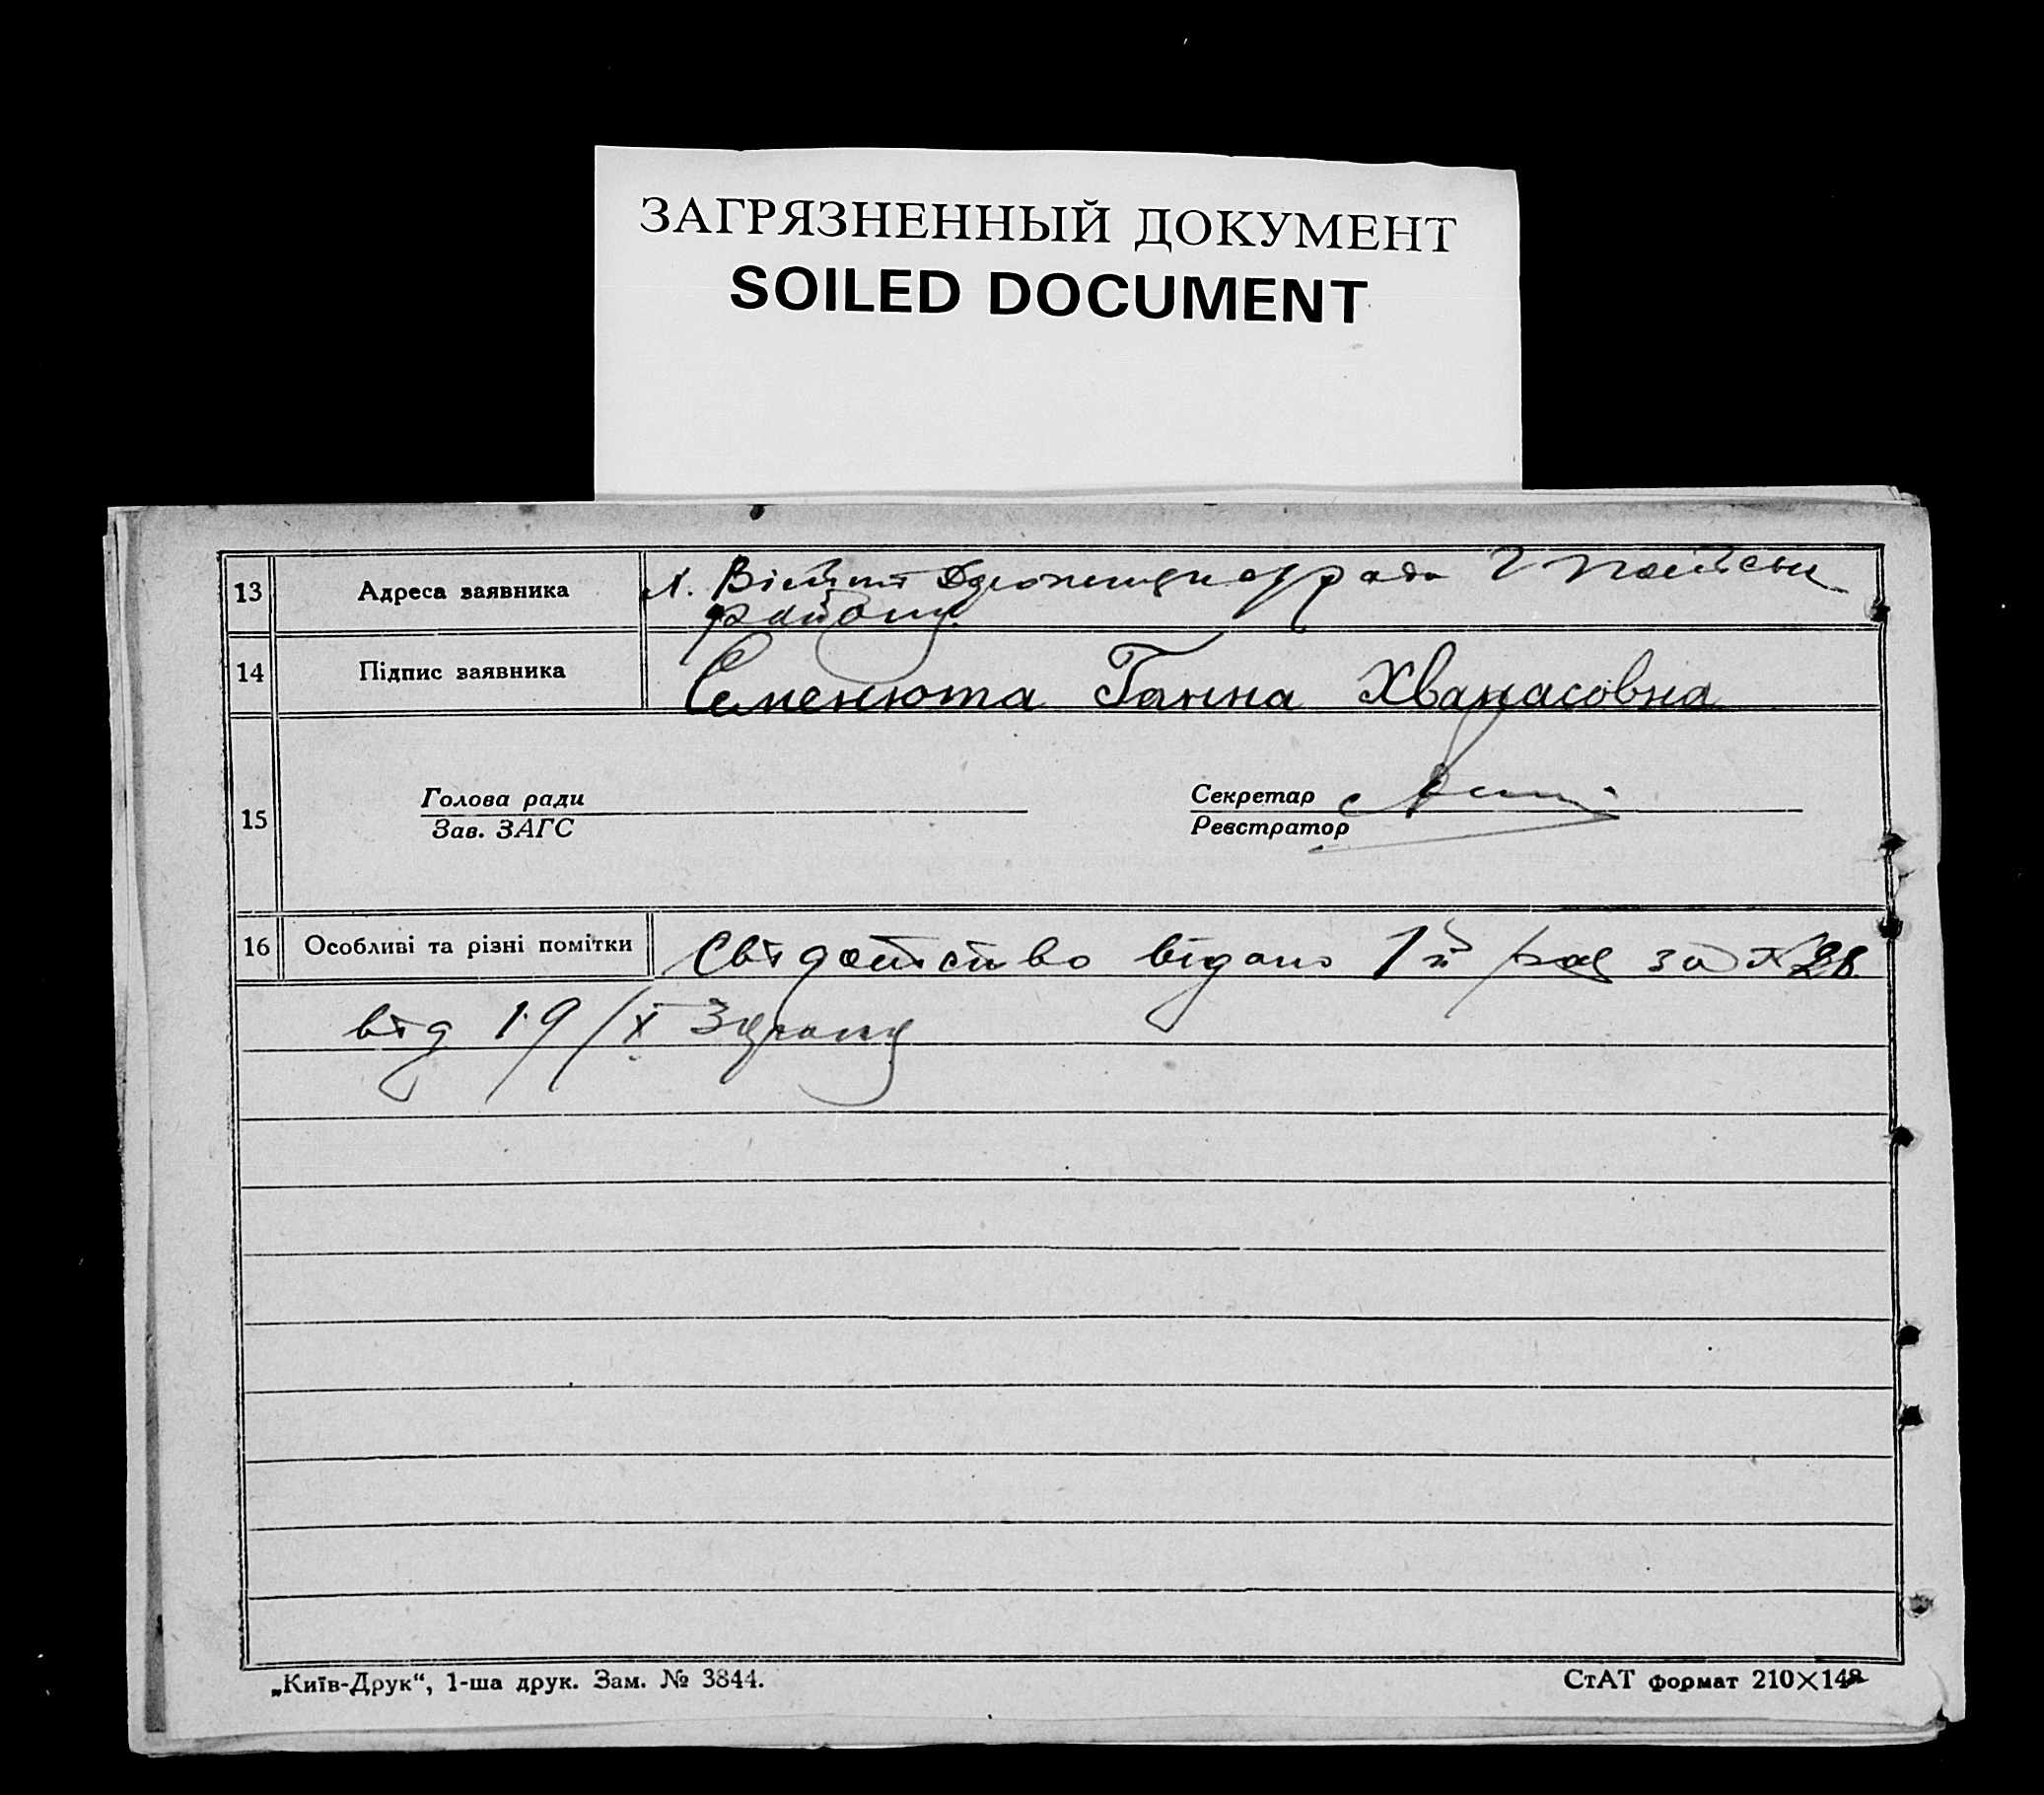 ЗАГРЯЗНЕННЫЙ ДОКУМЕНТ
SOILED DOCUMENT
13 Адреса заявника
району
14 Підпис заявника Семенюта Ганна Хванасовна
15 Голова ради Секретар
Зав. ЗАГС Реєстратор
16 Особливі та різні помітки Свідоцтво видано 1й раз за № 28
від 19/X
„Київ-Друк“, 1-ша друк. Зам. № 3844. СтАТ формат 210×148